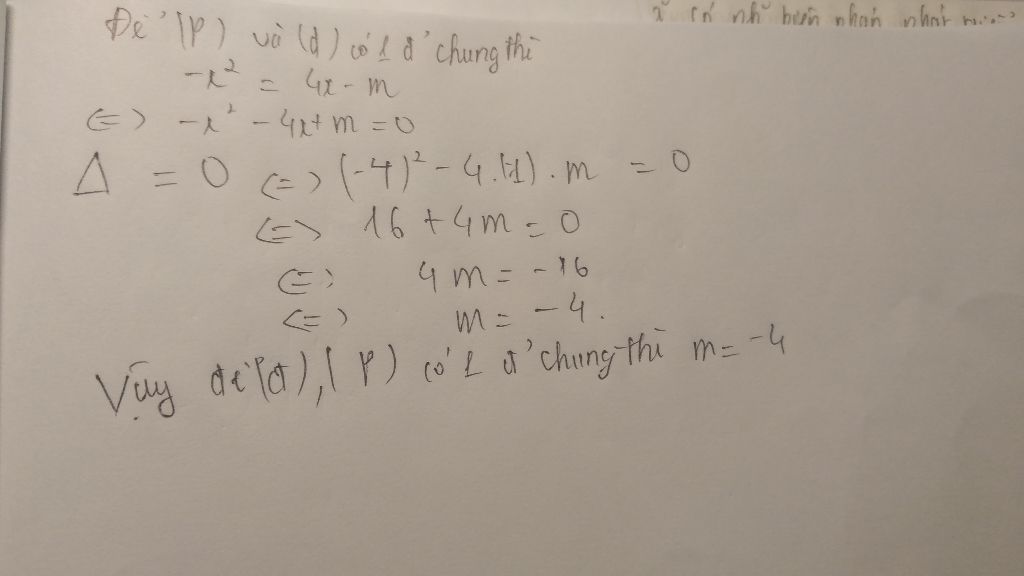 có nhỡ buồn nhan nhát
Để (P) và (d) có 1 đ' chung thì
-x² = 4x - m
<=> -x² - 4x + m = 0
Δ = 0 <=> (-4)² - 4.(-1).m = 0
<=> 16 + 4m = 0
<=> 4m = -16
<=> m = -4.
Vậy để (d), (P) có 1 đ' chung thì m = -4